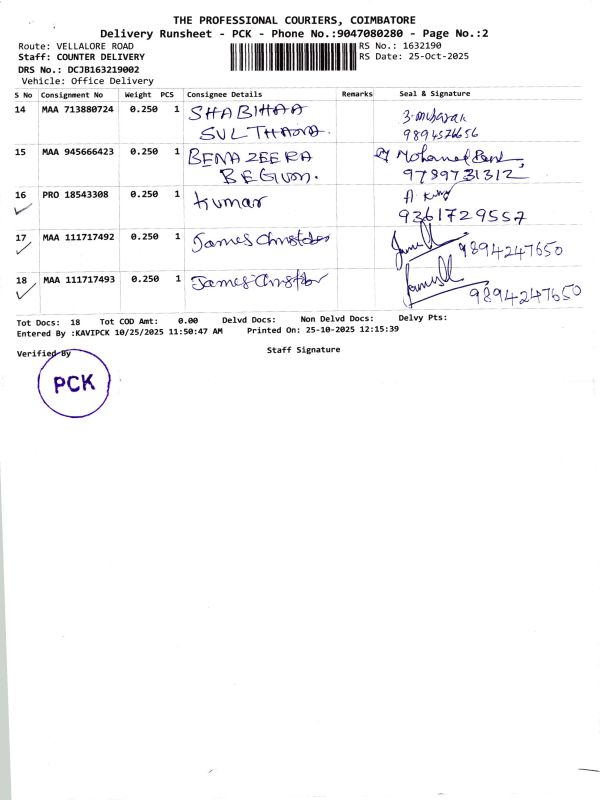 THE PROFESSIONAL COURIERS, COIMBATORE
Delivery Runsheet - PCK - Phone No.:9047080280 - Page No.:2
Route: VELLALORE ROAD RS No.: 1632190
Staff: COUNTER DELIVERY RS Date: 25-Oct-2025
DRS No.: DCJB163219002
Vehicle: Office Delivery
S No Consignment No Weight PCS Consignee Details Remarks Seal & Signature
14 MAA 713880724 0.250 1 SHABIHAA
SULTHANA.
15 MAA 945666423 0.250 1 BENAZEERA Mohamed
BEGUM. 9789731312
16 PRO 18543308 0.250 1 kumar
9361729557
17 MAA 111717492 0.250 1 James 9894247650
18 MAA 111717493 0.250 1 James 9894247650
Tot Docs: 18 Tot COD Amt: 0.00 Delvd Docs: Non Delvd Docs: Delvy Pts:
Entered By :KAVIPCK 10/25/2025 11:50:47 AM Printed On: 25-10-2025 12:15:39
Verified By Staff Signature
PCK